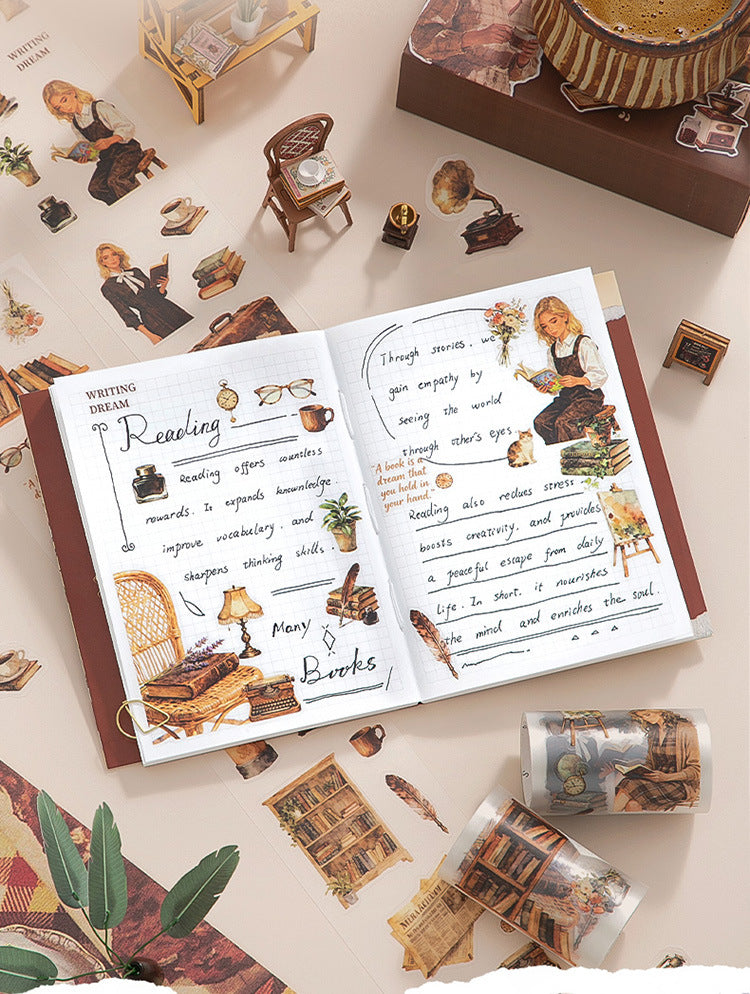 WRITING
DREAM
WRITING
DREAM
Reading
Reading offers countless
rewards. It expands knownledge.
improve vocabulary, and
sharpens thinking skills.
Many
Books
Through stories, we
gain empathy by
seeing the world
through other's eyes.
"A book is a
dream that
you hold in
your hand."
Reading also redues stress.
boosts creativity, and provides
a peaceful escape from daily
life. In short, it nourishes
the mind and enriches the soul.